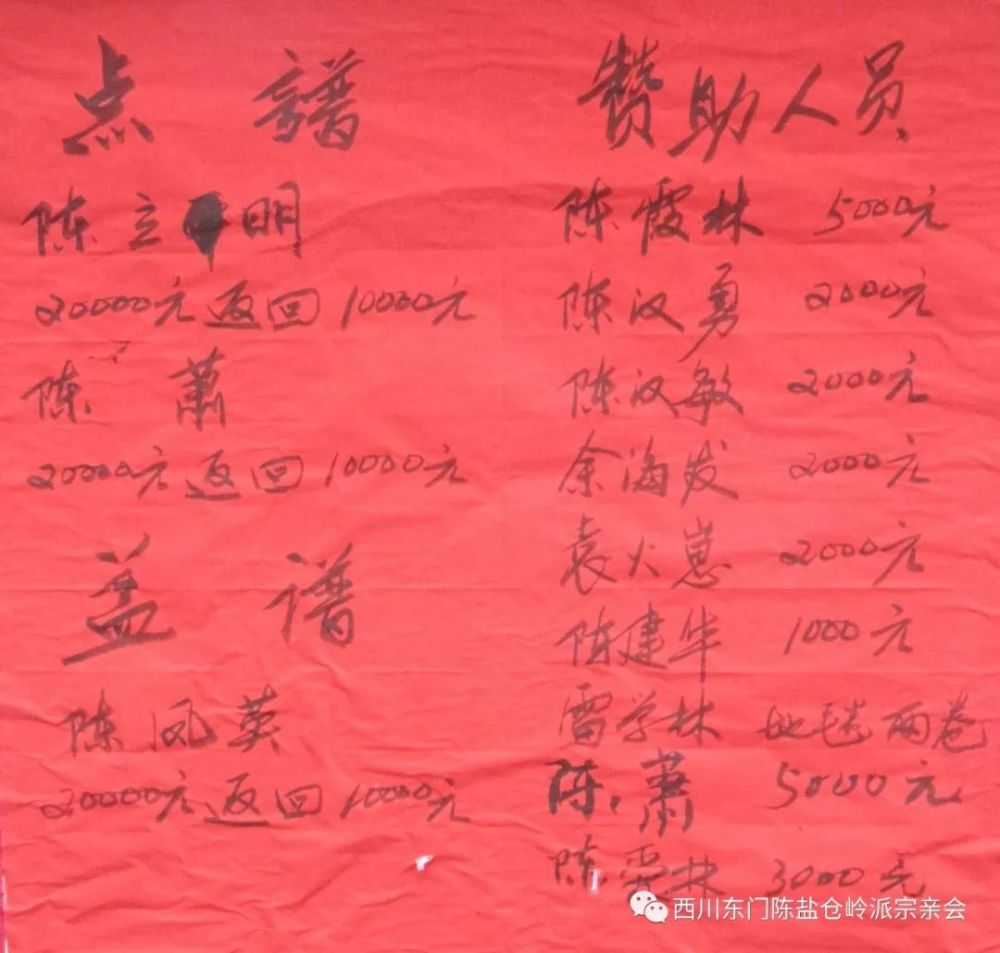 点譜
陈立明
20000元返回10000元
陈萧
20000元返回10000元
盖谱
陈凤英
20000元返回10000元
赞助人员
陈霞林 5000元
陈汉勇 2000元
陈汉敏 2000元
余海发 2000元
袁火崽 2000元
陈建华 1000元
雷学林 地毯两卷
陈萧 5000元
陈林 3000元
西川东门陈盐仓岭派宗亲会